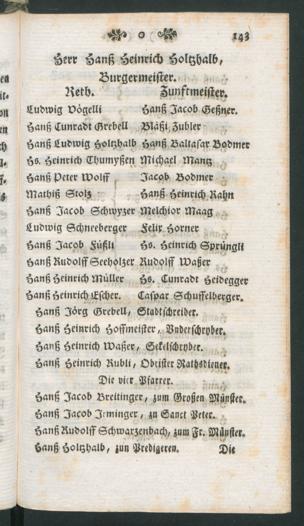 143
Herr Hanß Heinrich Holtzhalb,
Burgermeister.
Reth. Zunftmeister.
Ludwig Vögelli Hanß Jacob Geßner.
Hanß Cunradt Grebell Bläßi Zubler
Hanß Ludwig Holtzhalb Hanß Baltasar Bodmer
Hs. Heinrich Thumyßen Michael Mantz
Hanß Peter Wolff Jacob Bodmer
Mathiß Stolz Hanß Heinrich Rahn
Hanß Jacob Schwyzer Melchior Maag
Ludwig Schneeberger Felix Horner
Hanß Jacob Füßli Hs. Heinrich Sprüngli
Hanß Rudolff Seeholzer Rudolff Waßer
Hanß Heinrich Müller Hs. Cunradt Heidegger
Hanß Heinrich Escher. Caspar Schuffelberger.
Hanß Jörg Grebell, Stadtschreiber.
Hanß Heinrich Hoffmeister, Underschryber.
Hanß Heinrich Waßer, Seckelschryber.
Hanß Heinrich Kubli, Obrister Rathsdiener.
Die vier Pfarrer.
Hanß Jacob Breitinger, zum Großen Münster.
Hanß Jacob Irminger, zu Sanct Peter.
Hanß Rudolff Schwarzenbach, zum Fr. Münster.
Hanß Holtzhalb, zun Predigeren. Die